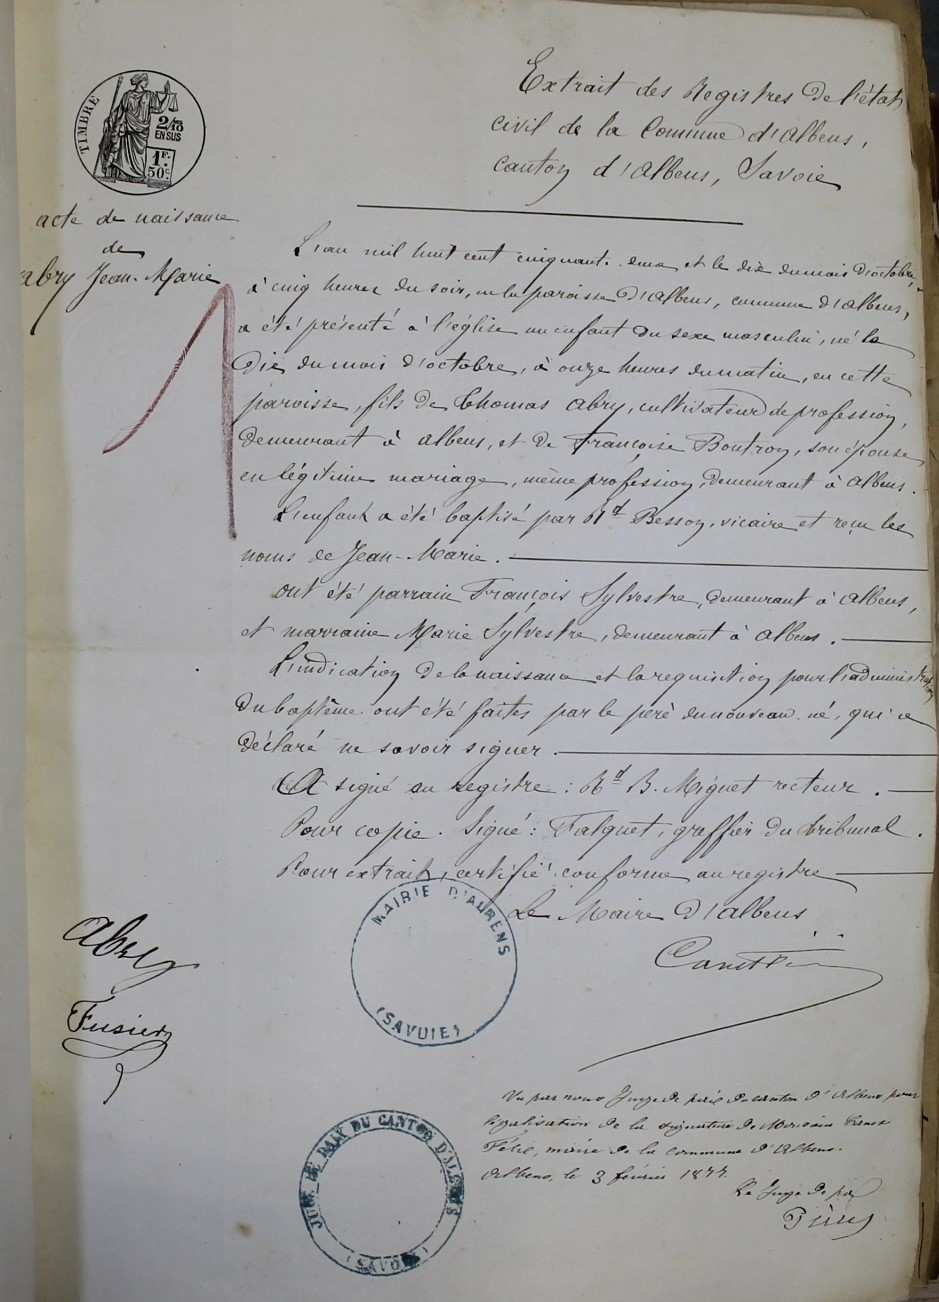 TIMBRE
2/10
EN SUS
1F.
50c.
Extrait des Registres de l'état
civil de la Commune d'Albens,
canton d'Albens, Savoie
acte de naissance
de
abry Jean-Marie
L'an mil huit cent cinquante et le dix du mois d'octobre,
à cinq heures du soir, en la paroisse d'Albens, commune d'Albens,
a été présenté à l'église un enfant du sexe masculin, né le
dix du mois d'octobre, à onze heures du matin, en cette
paroisse, fils de Thomas Abry, cultivateur de profession,
demeurant à Albens, et de Françoise Boutron, son épouse
en légitime mariage, même profession, demeurant à Albens.
L'enfant a été baptisé par Rd Besson, vicaire et reçu les
noms de Jean-Marie.
ont été parrain François Sylvestre, demeurant à Albens,
et marraine Marie Sylvestre, demeurant à Albens.
L'indication de la naissance et la requisition pour l'administration
du baptême ont été faites par le père du nouveau né, qui a
déclaré ne savoir signer.
A signé au registre : Rd B. Miguet recteur.
Pour copie. Signé : Falquet, greffier du tribunal.
Pour extrait, certifié conforme au registre
Le Maire d'Albens
MAIRIE D'ALBENS
(SAVOIE)
Abry
Fusier
Vu par nous Juge de paix du canton d'Albens pour
légalisation de la signature de
Félix, maire de la commune d'Albens.
Albens, le 3 février 1877.
Le Juge de paix
JUGE DE PAIX DU CANTON D'ALBENS
(SAVOIE)